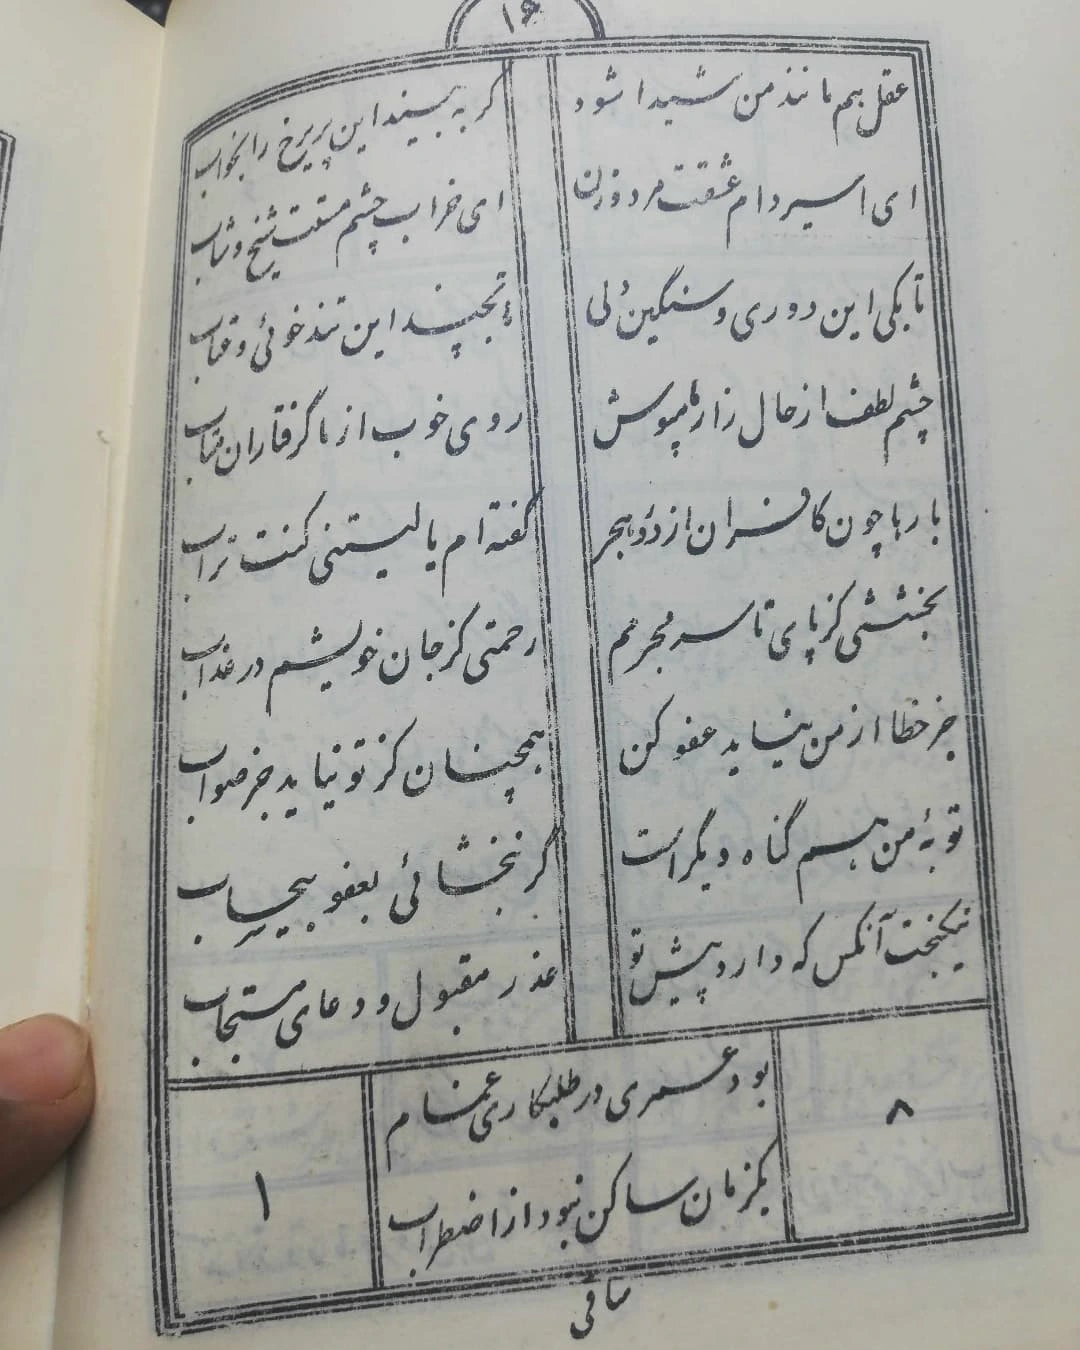 ۱۶
عقل هم مانند من شیدا شود گر به بیند این پریرخ را بخواب
ای اسیر دام عشقت مرد و زن ای خراب چشم مستت شیخ و شاب
تا بکی این دوری و سنگین دلی تا بچند این تند خوئی و عتاب
چشم لطف از حال زار ما مپوش روی خوب از ما گرفتاران متاب
بارها چون کافران از درد هجر گفته ام یا لیتنی کنت تراب
بخششی کز پای تا سر مجرمم رحمتی کز جان خویشم در عذاب
جز خطا از من نیاید عفو کن همچنان کز تو نیاید جز صواب
توبهٔ من هم گناه دیگر است گر نبخشائی بعفو بیحساب
نیکبخت آنکس که دارد پیش تو عذر مقبول و دعای مستجاب
بود عمری در طلبکاری غمام
۸ ۱
یکزمان ساکن نبود از اضطراب
ساقی